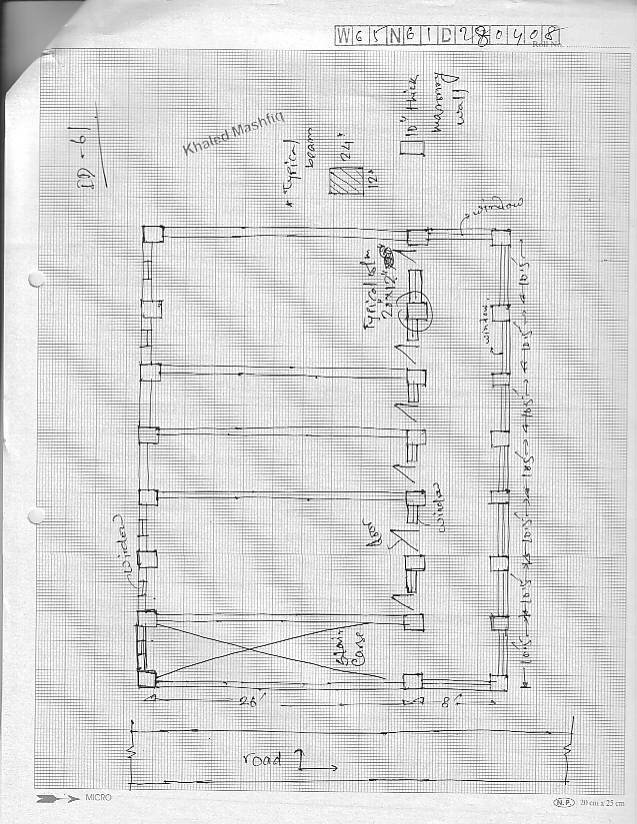 W65NG1D280408
Roll No.
ID - 61
Khaled Mashfiq
* Typical
beam
24"
12"
10" thick
masonry
wall
window
Typical clm
20"x12"
window
window
window
door
Stair
Case
26'
8'
10.5
10.5
10.5
10.5
10.5
10.5
10.5
road
MICRO
N.P. 20 cm x 25 cm